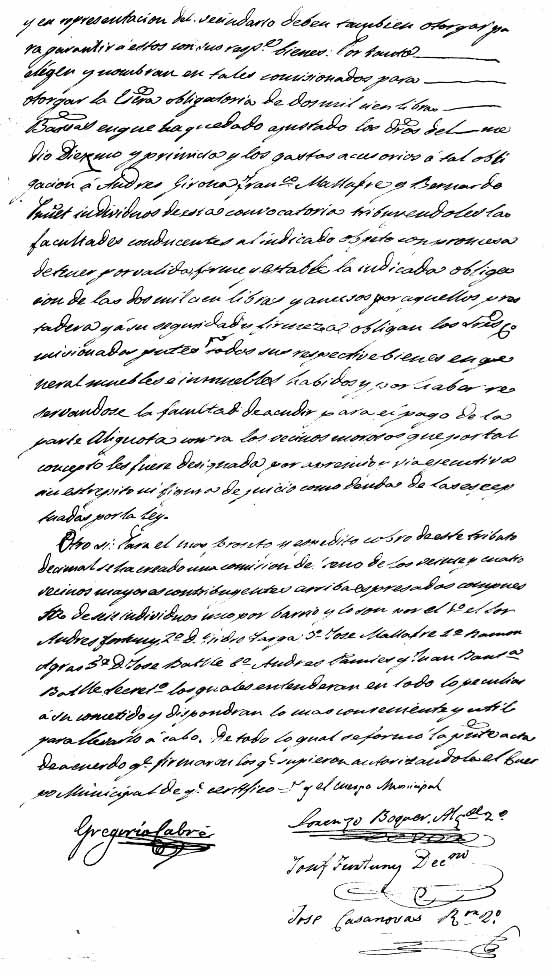 y en representacion del vecindario deben tambien otorgar pa
ra garantir á estos con sus respᵒˢ bienes: Por tanto
eligen y nombran en tales comisionados para
otorgar la Escra obligatoria de dos mil cien libras
Barsas en que ha quedado ajustado los dros del me
dio Diezmo y primicia y los gastos acesorios á tal obli
gacion á Andres Girona, Franco Mallafre y Bernardo
individuos de esta convocatoria tribuyendoles las
facultades conducentes al indicado objeto con promesa
de tener por valida, firme y estable la indicada obliga
cion de las dos mil cien libras y anecsos por aquellos pres
tadera y á su seguridad y firmeza obligan los tres Co
micionados todos sus respective bienes en ge
neral muebles é inmuebles habidos y por haber re
servandose la facultad de acudir para el pago de la
parte Aliquota contra los vecinos morosos que por tal
concepto les fuere designada por apremio y via ejecutiva
sin estrepito ni figura de juicio como deudas de las escep
tuadas por la ley.
Otro si: Para el mas pronto y espedito cobro de este tributo
decimal se ha creado una comision de seno de los veinte y cuatro
vecinos mayores contribuyentes arriba espresados compues
ta de seis individuos uno por barrio y lo son por el 1º el Sor
Andres Fortuny 2º Dn Isidro Sarga 3º Jose Mallafre 4º Ramon
Agras 5º D. Jose Batlle 6º Andres Pamies y Juan Bauta
Batlle Secreto los quales entenderan en todo lo peculiar
á su cometido y dispondran lo mas conveniente y util
para llevarlo á cabo. De todo lo qual se formo la pnte acta
de acuerdo qe firmaron los qe supieron autorizandola el Cuer
po Municipal de qe certifico = y el cuerpo Municipal
Gregorio Cabré
Lorenzo Boquer, Alce 2º
Josef Funtuny Decno
Jose Casanovas Ror 2º